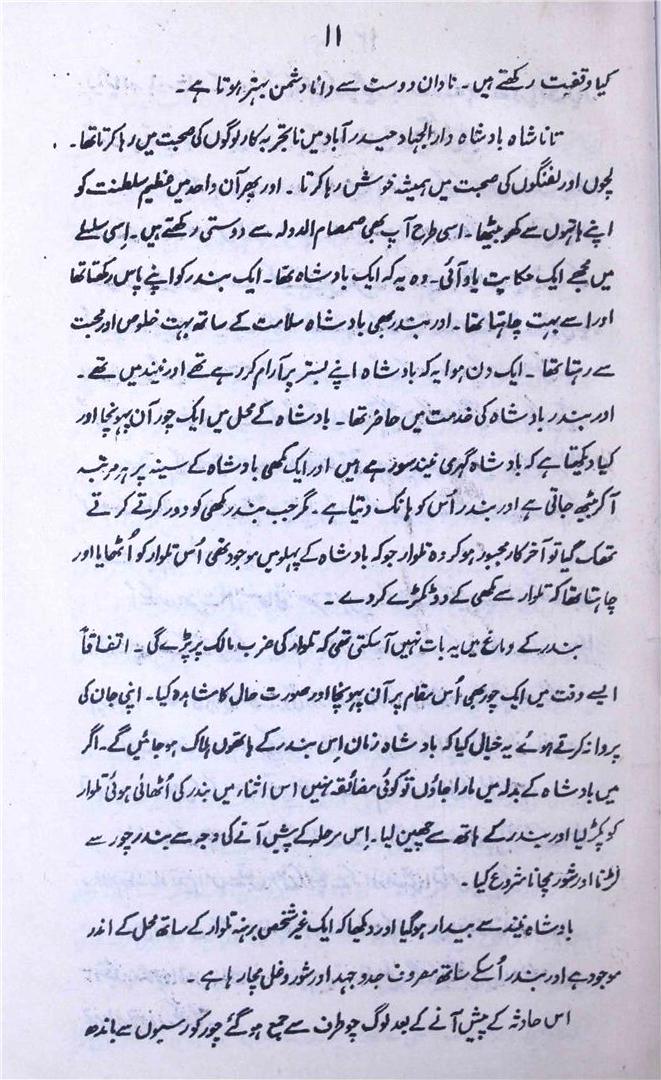 ۱۱
کیا وقعت رکھتے ہیں۔ نادان دوست سے دانا دشمن بہتر ہوتا ہے۔
تانا شاہ بادشاہ دارالجہاد حیدرآباد میں ناتجربہ کار لوگوں کی صحبت میں رہا کرتا تھا۔
لچوں اور لفنگوں کی صحبت میں ہمیشہ خوش رہا کرتا۔ اور پھر آن واحد میں عظیم سلطنت کو
اپنے ہاتھوں سے کھو بیٹھا۔ اسی طرح آپ بھی صمصام الدولہ سے دوستی رکھتے ہیں۔ اِسی سلسلے
میں مجھے ایک حکایت یاد آئی۔ وہ یہ کہ ایک بادشاہ تھا۔ ایک بندر کو اپنے پاس رکھتا تھا
اور اسے بہت چاہتا تھا۔ اور بندر بھی بادشاہ سلامت کے ساتھ بہت خلوص اور محبت
سے رہتا تھا۔ ایک دن ہوا یہ کہ بادشاہ اپنے بستر پر آرام کر رہے تھے اور نیند میں تھے۔
اور بندر بادشاہ کی خدمت میں حاضر تھا۔ بادشاہ کے محل میں ایک چور آن پہونچا اور
کیا دیکھتا ہے کہ بادشاہ گہری نیند سو رہے ہیں اور ایک مکھی بادشاہ کے سینہ پر ہر مرتبہ
آکر بیٹھ جاتی ہے اور بندر اُس کو ہانک دیتا ہے۔ مگر جب بندر مکھی کو دور کرتے کرتے
تھک گیا تو آخر کار مجبور ہو کر وہ تلوار جو کہ بادشاہ کے پہلو میں موجود تھی اُس تلوار کو اُٹھایا اور
چاہتا تھا کہ تلوار سے مکھی کے دو ٹکڑے کر دے۔
بندر کے دماغ میں یہ بات نہیں آسکتی تھی کہ تلوار کی ضرب مالک پر پڑے گی۔ اتفاقاً
ایسے وقت میں ایک چور بھی اُس مقام پر آن پہونچا اور صورت حال کا مشاہدہ کیا۔ اپنی جان کی
پروا نہ کرتے ہوئے یہ خیال کیا کہ بادشاہ زمان اِس بندر کے ہاتھوں ہلاک ہو جائیں گے۔ اگر
میں بادشاہ کے بدلہ میں مارا جاؤں تو کوئی مضائقہ نہیں اس اثناء میں بندر کی اُٹھائی ہوئی تلوار
کو پکڑ لیا اور بندر کے ہاتھ سے چھین لیا۔ اِس مرحلہ کے پیش آنے کی وجہ سے بندر چور سے
لڑنا اور شور مچانا شروع کیا۔
بادشاہ نیند سے بیدار ہو گیا اور دیکھا کہ ایک غیر شخص برہنہ تلوار کے ساتھ محل کے اندر
موجود ہے اور بندر اُسکے ساتھ مصروف جدوجہد اور شور و غل مچا رہا ہے۔
اس حادثہ کے پیش آنے کے بعد لوگ چو طرف سے جمع ہو گئے چور کو رسیوں سے باندھ